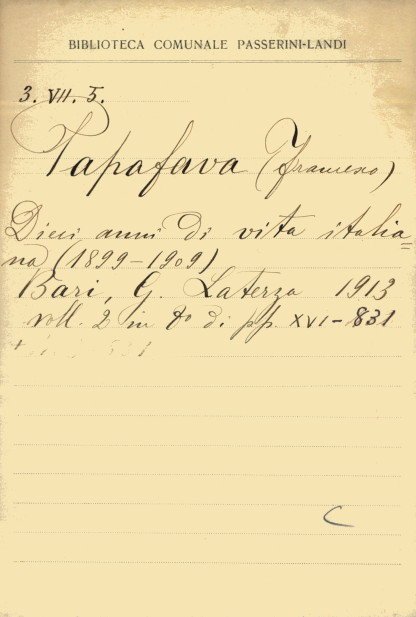 BIBLIOTECA COMUNALE PASSERINI-LANDI
3. VII. 5.
Papafava (Francesco)
Dieci anni di vita italia=
na (1899-1909)
Bari, G. Laterza 1913
voll. 2 in 8º di pp. XVI-831
C